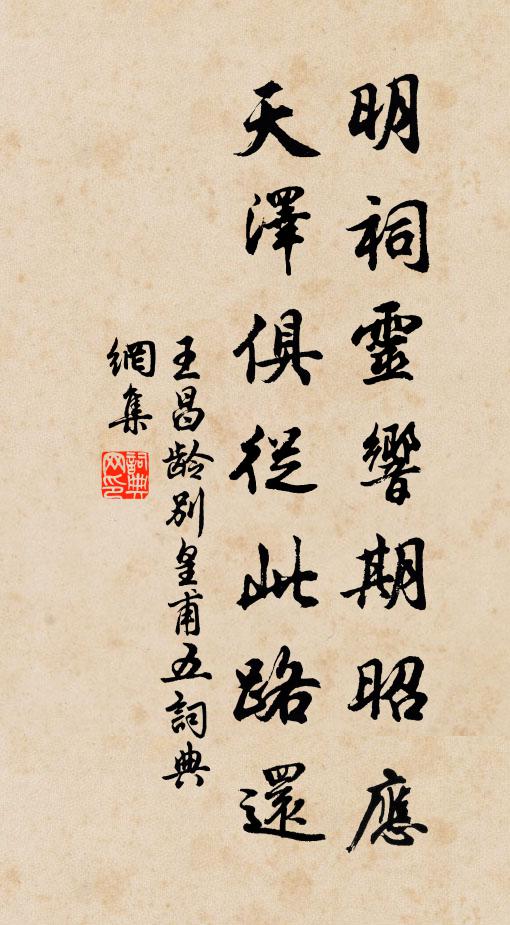 明祠靈響期昭應
天澤俱從此路還
王昌齡別皇甫五詞典
網集
詞典網印